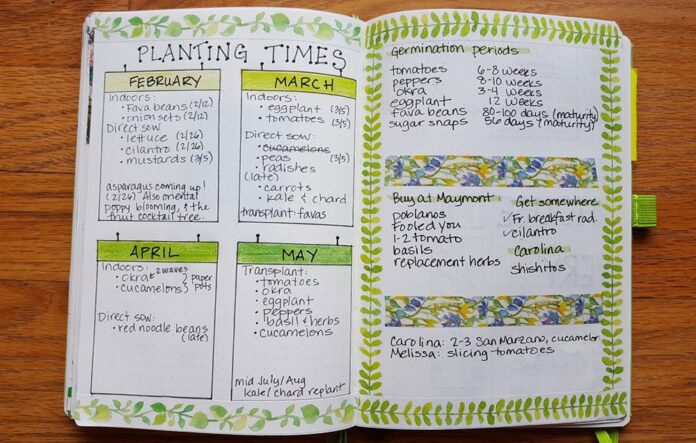 PLANTING TIMES
FEBRUARY
Indoors:
• Fava beans (2/12)
• onion sets (2/12)
Direct sow
• lettuce (2/26)
• cilantro (2/26)
• mustards (3/5)
asparagus coming up!
(2/26) Also oriental
poppy blooming, & the
fruit cocktail tree.
MARCH
Indoors:
• eggplant (3/5)
• tomatoes (3/5)
Direct sow:
• cucamelons
• peas (3/5)
• radishes
(late)
• carrots
• kale & chard
transplant: favas
APRIL
Indoors:
• okra* 2 waves
• cucamelons } paper pots
Direct sow:
• red noodle beans
(late)
MAY
Transplant:
• tomatoes
• okra
• eggplant
• peppers
• basil & herbs
• cucamelons
mid July/Aug
kale/chard replant
Germination periods
tomatoes 6-8 weeks
peppers 8-10 weeks
okra 3-4 weeks
eggplant 12 weeks
fava beans 80-100 days (maturity)
sugar snaps 56 days (maturity)
Buy at Maymont
poblanos
Fooled you
1-2 tomato
basils
replacement herbs
Get somewhere
✓ Fr. breakfast rad.
✓ cilantro
Carolina
shishitos
Carolina: 2-3 San Marzano, cucamelon
Melissa: slicing tomatoes